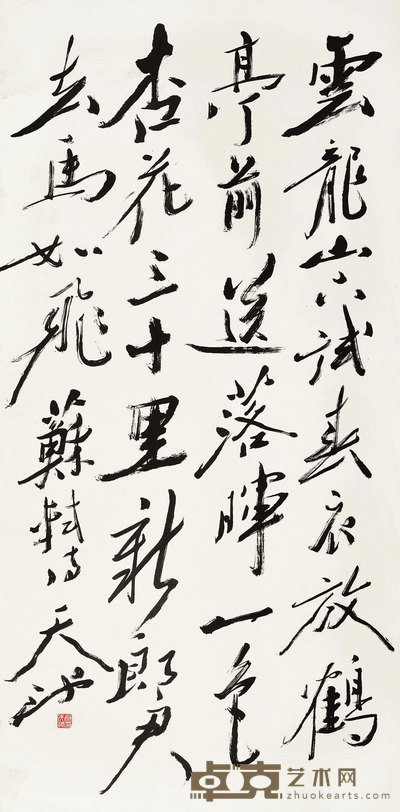 雲龍山下試春衣放鶴
亭前送落暉一色
杏花三十里新郎君
去馬如飛 蘇軾詩 天池
卓克艺术网
www.zhuokearts.com